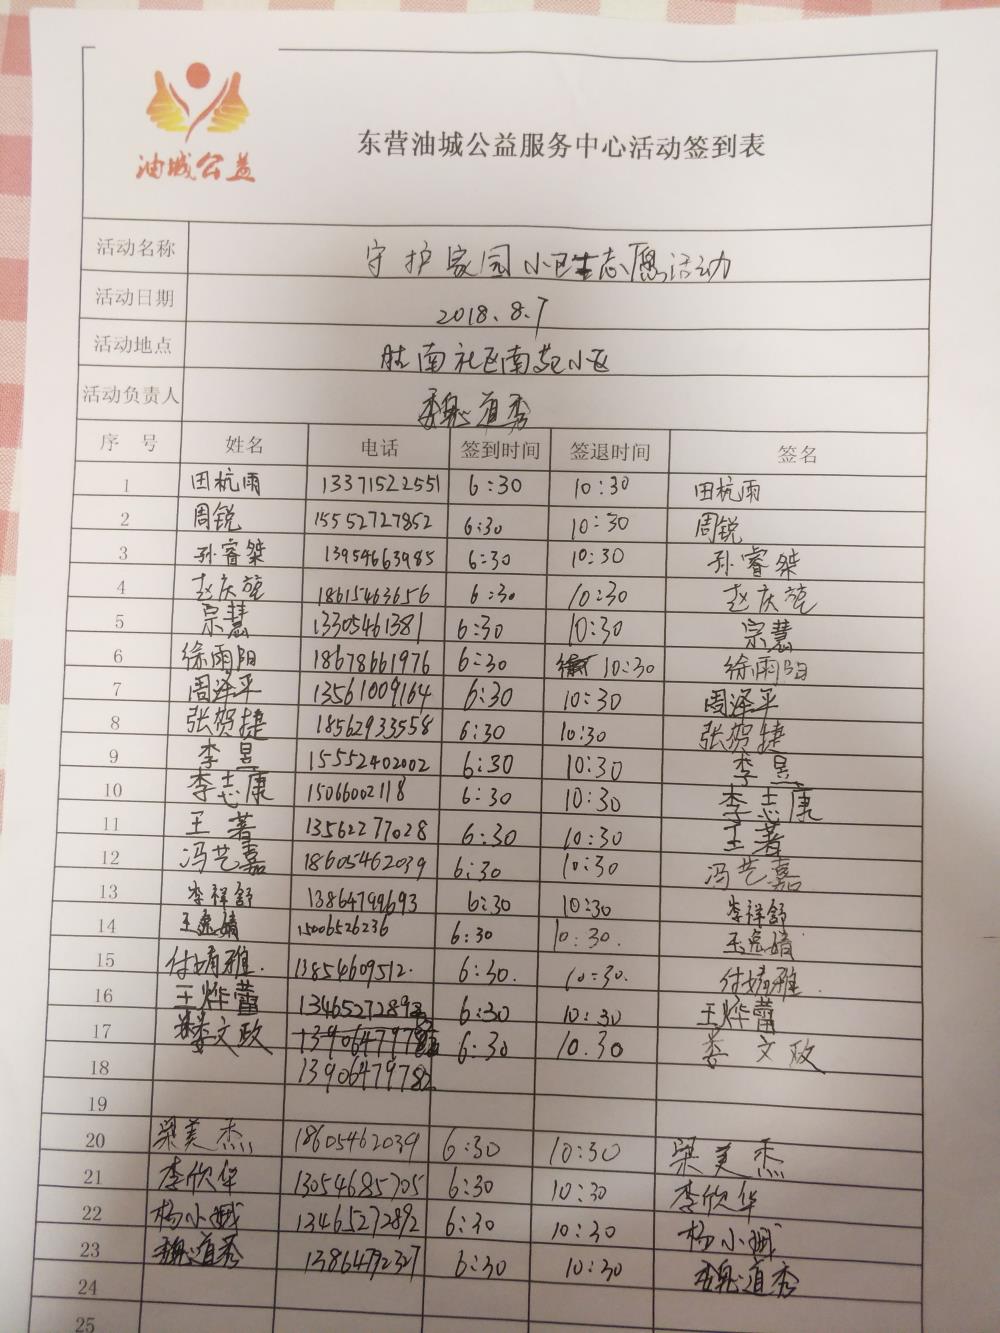 油城公益
东营油城公益服务中心活动签到表
活动名称 守护家园小卫生志愿活动
活动日期 2018.8.7
活动地点 胜南社区南苑小区
活动负责人 魏道秀
序 号 姓名 电话 签到时间 签退时间 签名
1 田杭雨 13371522551 6:30 10:30 田杭雨
2 周锐 15552727852 6:30 10:30 周锐
3 孙睿桀 13954663985 6:30 10:30 孙睿桀
4 赵庆喆 18615463656 6:30 10:30 赵庆喆
5 宗慧 13305461381 6:30 10:30 宗慧
6 徐雨阳 18678661976 6:30 10:30 徐雨阳
7 周泽平 13561009164 6:30 10:30 周泽平
8 张贺捷 18562933558 6:30 10:30 张贺捷
9 李昱 15552402002 6:30 10:30 李昱
10 李志康 15066002118 6:30 10:30 李志康
11 王著 13562277028 6:30 10:30 王著
12 冯艺嘉 18605462039 6:30 10:30 冯艺嘉
13 李祥舒 13864799693 6:30 10:30 李祥舒
14 王逸婧 15006526236 6:30 10:30. 王逸婧
15 付婧雅. 13854609512. 6:30. 10:30. 付婧雅.
16 王烨蕾 6:30 10:30 王烨蕾
17 娄文政 6:30 10.30 娄文政
18 13906479782
19
20 梁美杰 18605462039 6:30 10:30 梁美杰
21 李欣华 13054685705 6:30 10:30 李欣华
22 杨小 13465272892 6:30 10:30 杨小
23 魏道秀 13864792327 6:30 10:30 魏道秀
24
25